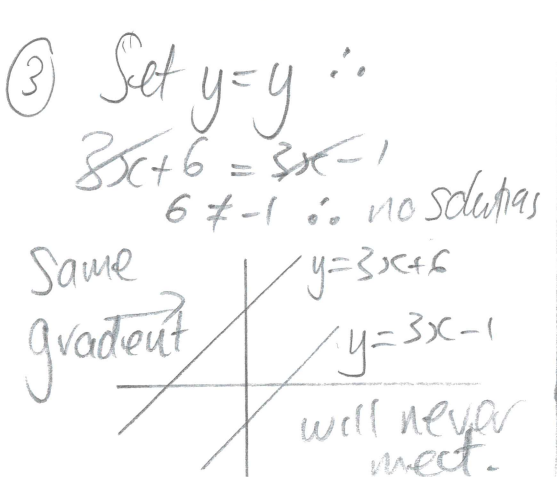 ③ Set y=y ∴
3x+6 = 3x-1
6≠-1 ∴ no solutions
Same
gradient
y=3x+6
y=3x-1
will never
meet.